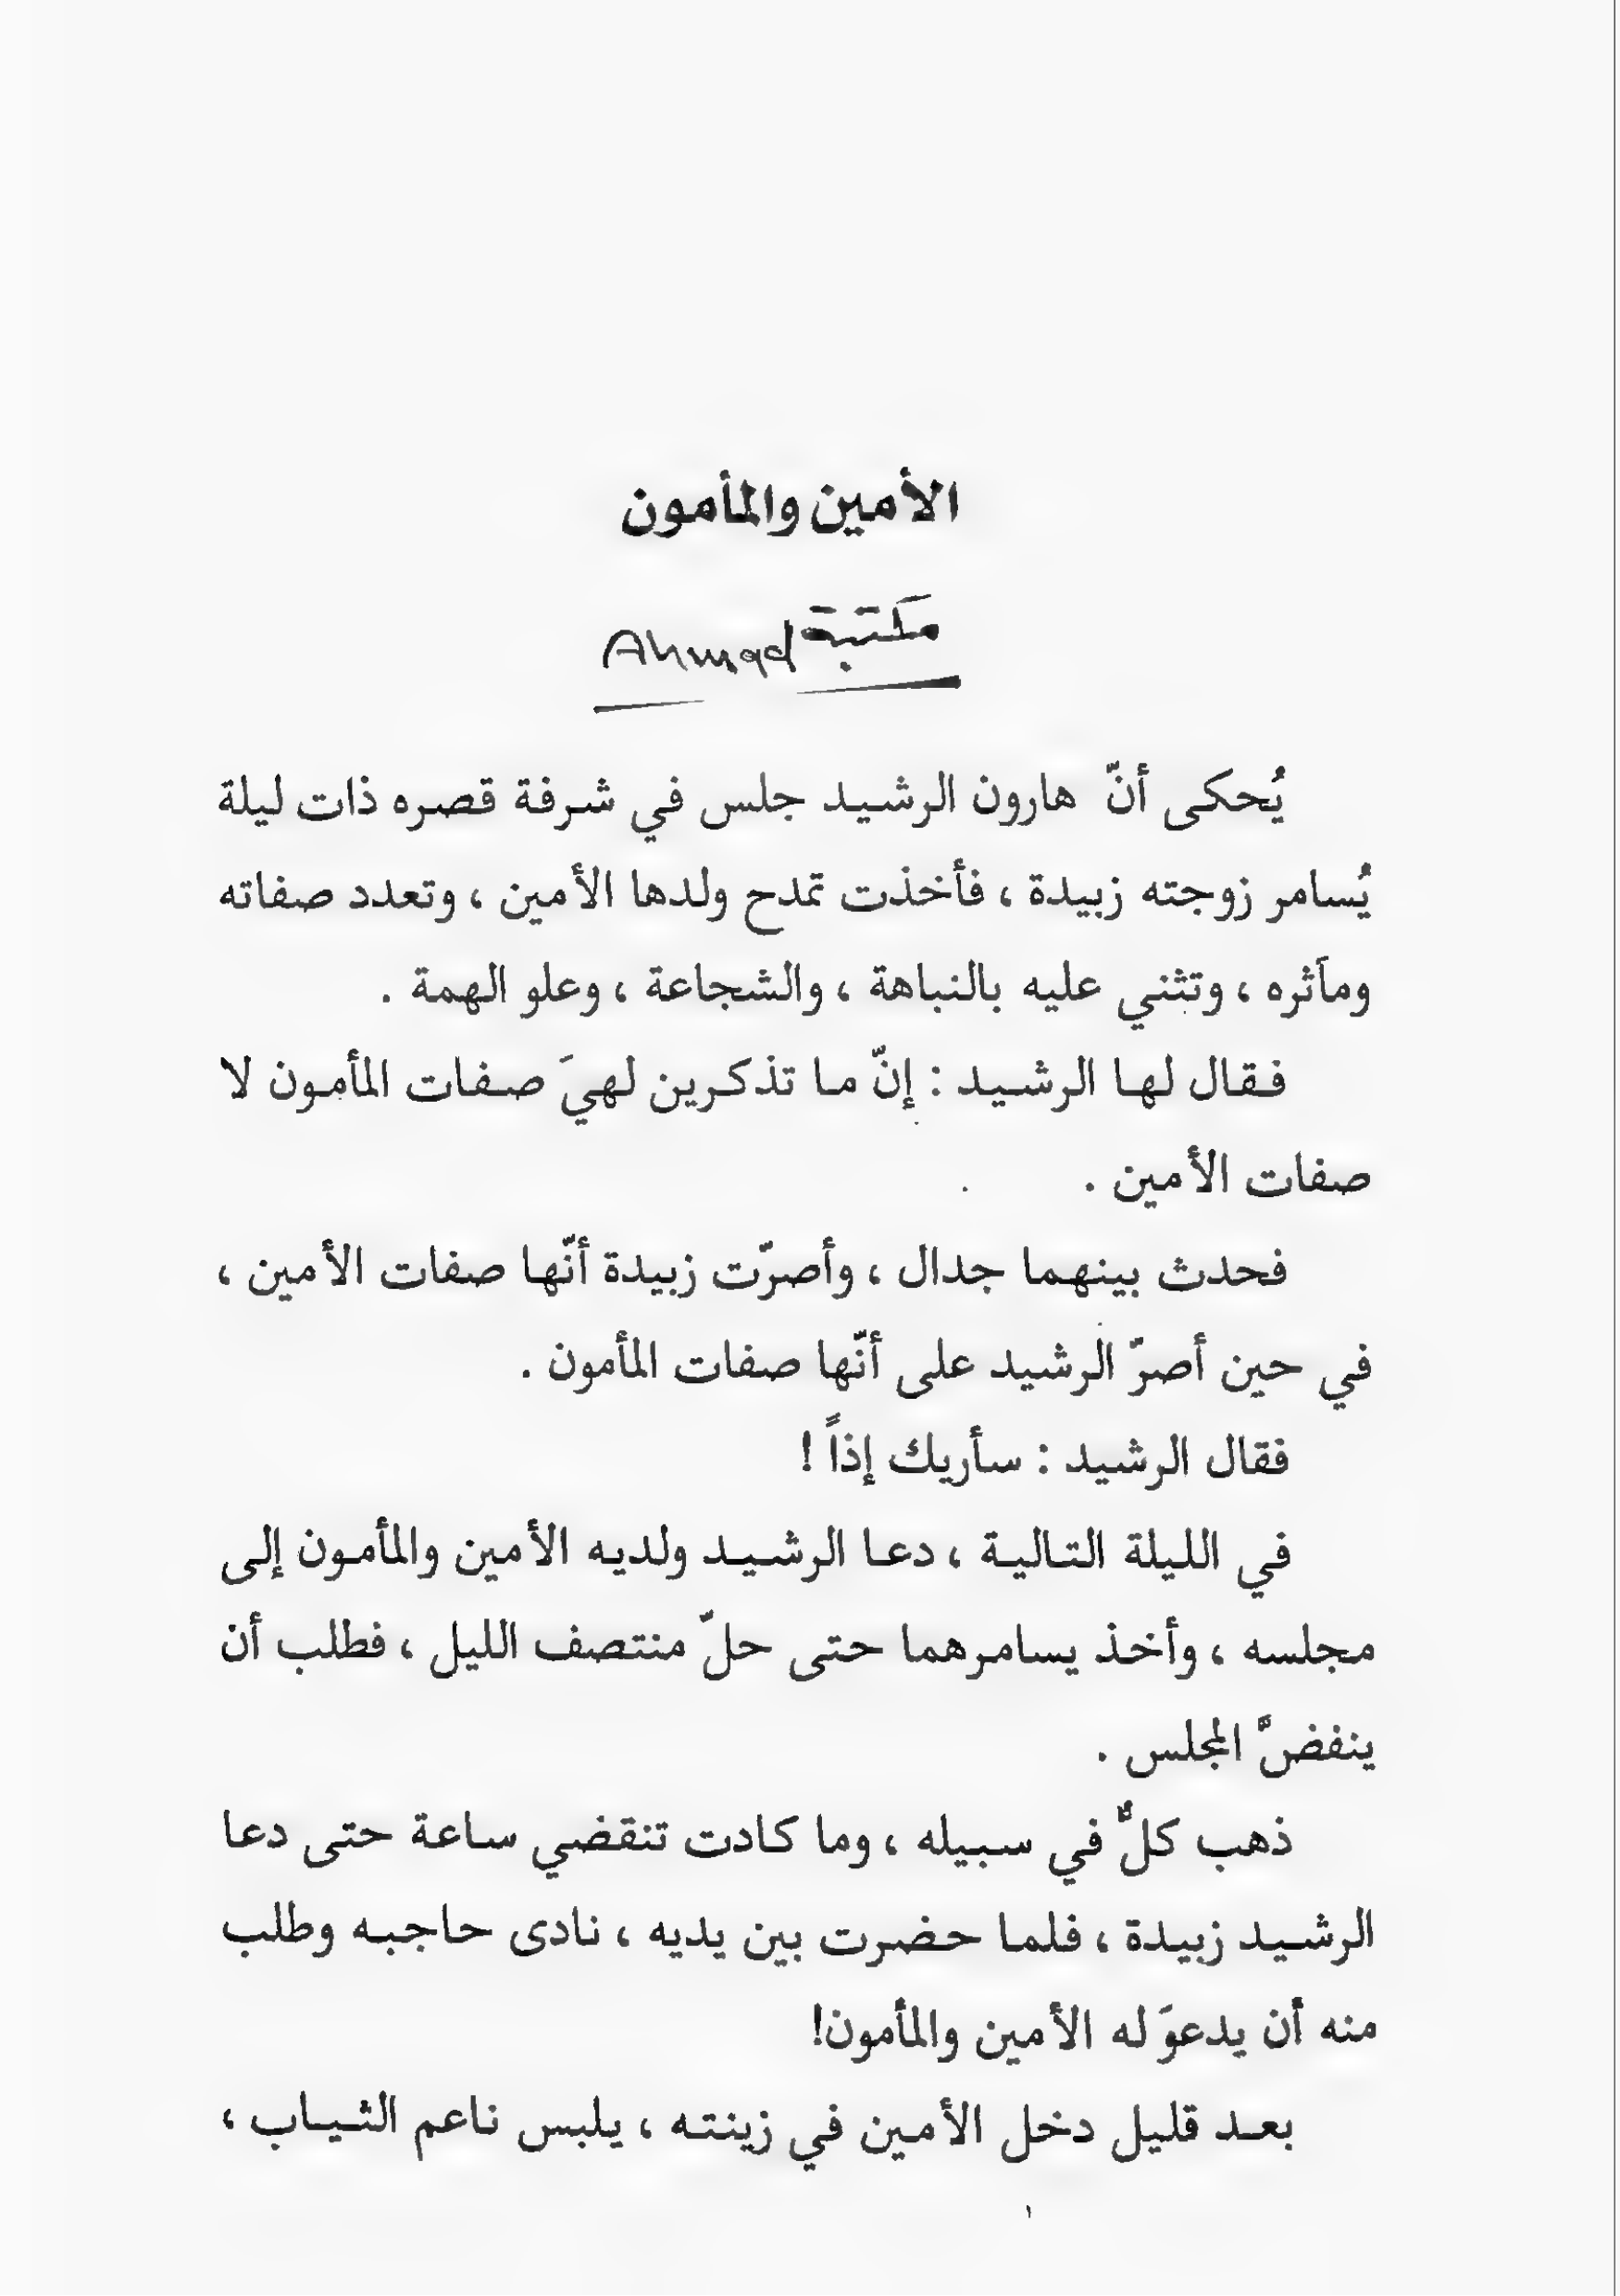 الأمين والمأمون
مكتبة Ahmad
يُحكى أنّ هارون الرشيد جلس في شرفة قصره ذات ليلة
يُسامر زوجته زبيدة ، فأخذت تمدح ولدها الأمين ، وتعدد صفاته
ومآثره ، وتثني عليه بالنباهة ، والشجاعة ، وعلو الهمة .
فقال لها الرشيد : إنّ ما تذكرين لهيَ صفات المأمون لا
صفات الأمين .
فحدث بينهما جدال ، وأصرّت زبيدة أنّها صفات الأمين ،
في حين أصرّ الرشيد على أنّها صفات المأمون .
فقال الرشيد : سأريك إذاً !
في الليلة التالية ، دعا الرشيد ولديه الأمين والمأمون إلى
مجلسه ، وأخذ يسامرهما حتى حلّ منتصف الليل ، فطلب أن
ينفضَّ المجلس .
ذهب كلٌّ في سبيله ، وما كادت تنقضي ساعة حتى دعا
الرشيد زبيدة ، فلما حضرت بين يديه ، نادى حاجبه وطلب
منه أن يدعوَ له الأمين والمأمون!
بعد قليل دخل الأمين في زينته ، يلبس ناعم الثياب ،
١